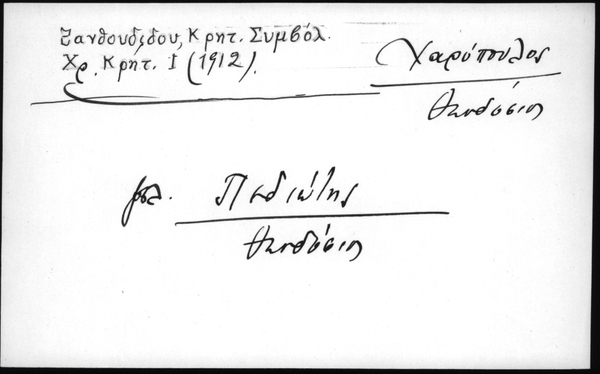 Ξανθουδίδου, Κρητ. Συμβόλ.
Χρ. Κρητ. Ι (1912).
Χαρόπουλος
Θεοδόσιος
βλ. Πεδιώτης
Θεοδόσιος